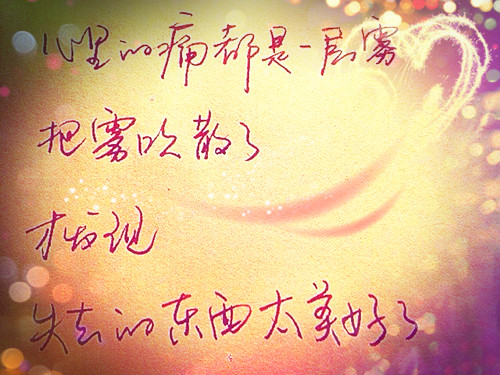 心里的痛都是一层雾
把雾吹散了
才发现
失去的东西太美好了